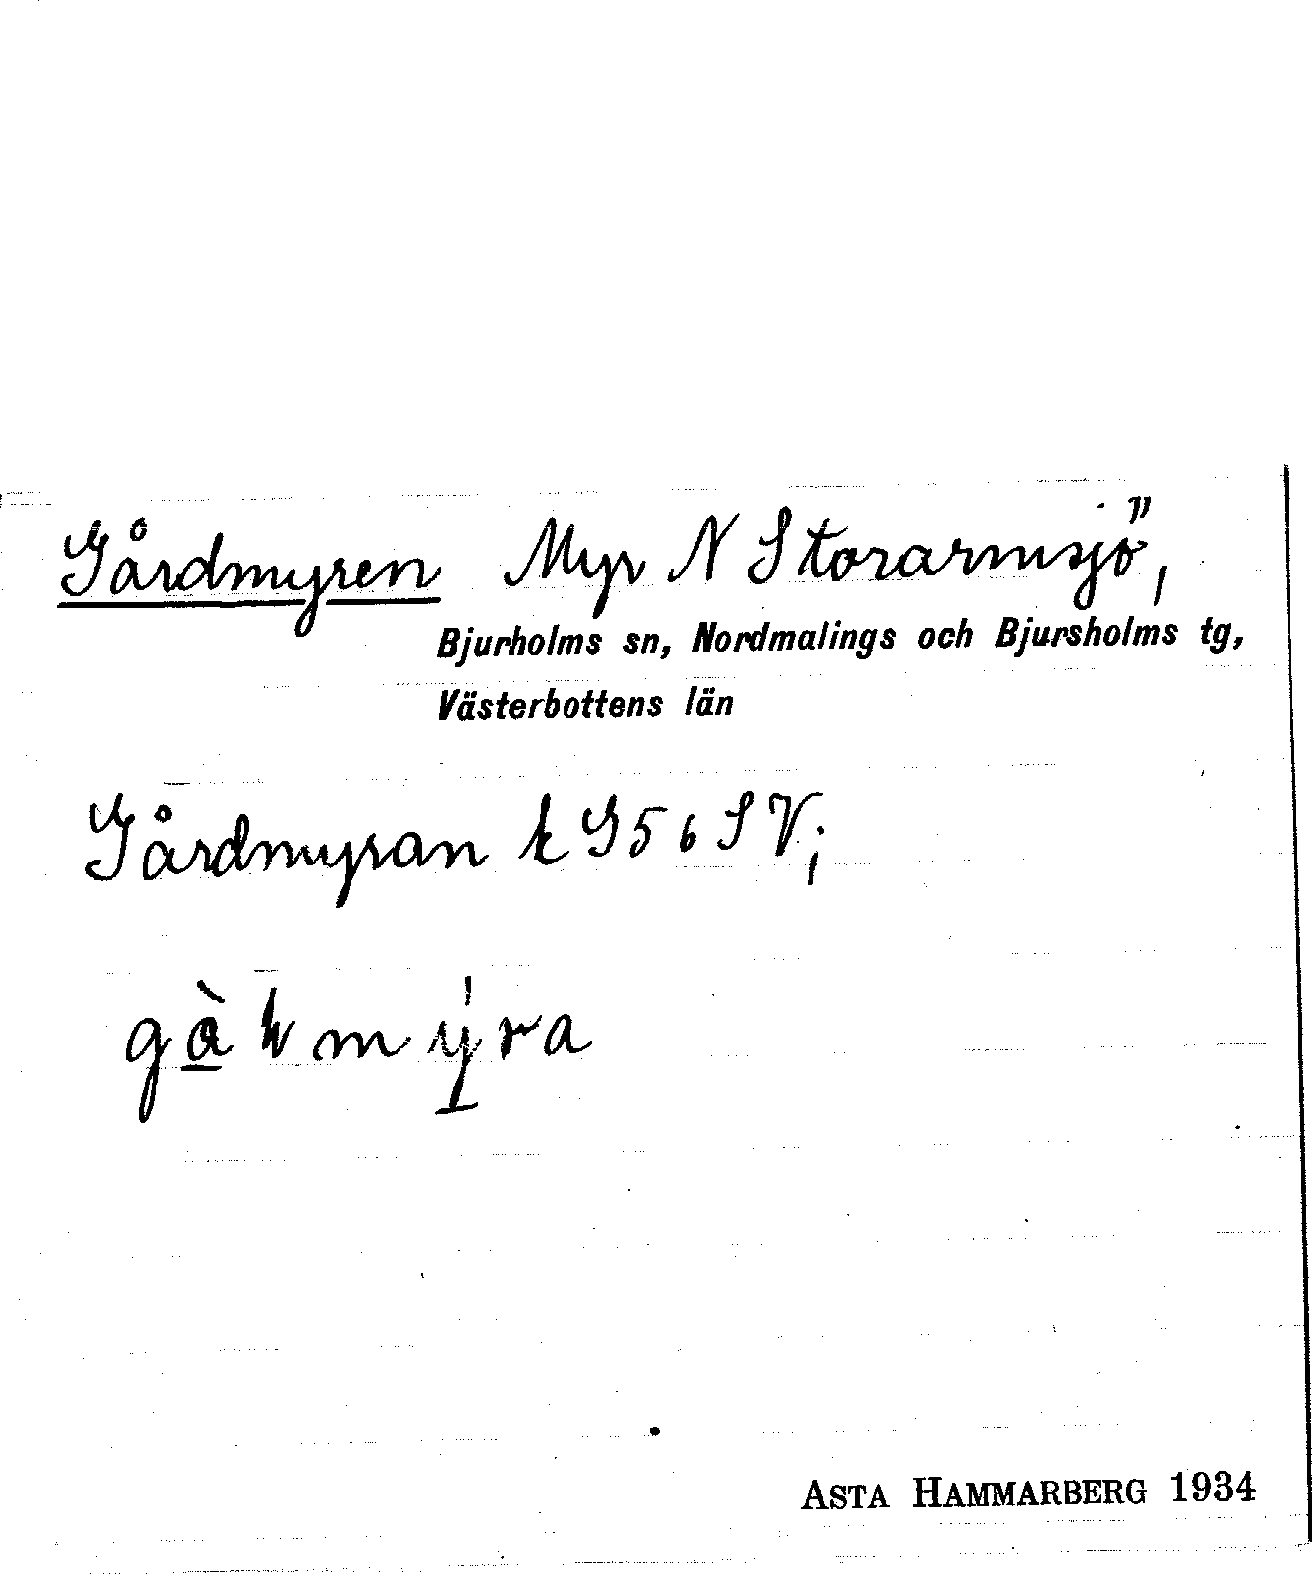 Gårdmyren Myr N Storarmsjö,
Bjurholms sn, Nordmalings och Bjursholms tg,
Västerbottens län
Gårdmyran k G 56 S V;
ASTA HAMMARBERG 1934